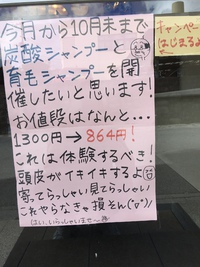 今月から10月末まで
炭酸シャンプーと
育毛シャンプーを開
催したいと思います!
お値段はなんと…
1300円→864円!
これは体験するべき!
頭皮がイキイキするよ
寄ってらっしゃい見てらっしゃい
これやらなきゃ損そん(''▽'')ノ
はい、いらっしゃいませ〜
キャンペー
はじまるよ